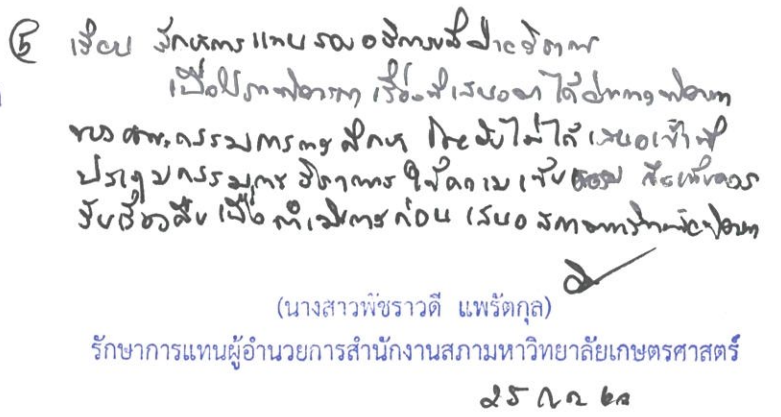 ⑤ เรียน รักษาการแทนรองอธิการบดีฝ่ายวิชาการ
เพื่อโปรดพิจารณา เรื่องที่เสนอมา ได้ผ่านการพิจารณา
ของคณะกรรมการการศึกษา โดยยังไม่ได้เสนอเข้าที่
ประชุมกรรมการวิชาการ ให้ความเห็นชอบ จึงเห็นควร
รับเรื่องคืน เพื่อดำเนินการก่อน เสนอสภามหาวิทยาลัยพิจารณา
(นางสาวพัชราวดี แพรัตกุล)
รักษาการแทนผู้อำนวยการสำนักงานสภามหาวิทยาลัยเกษตรศาสตร์
๒๕ ก.ค. ๖๓